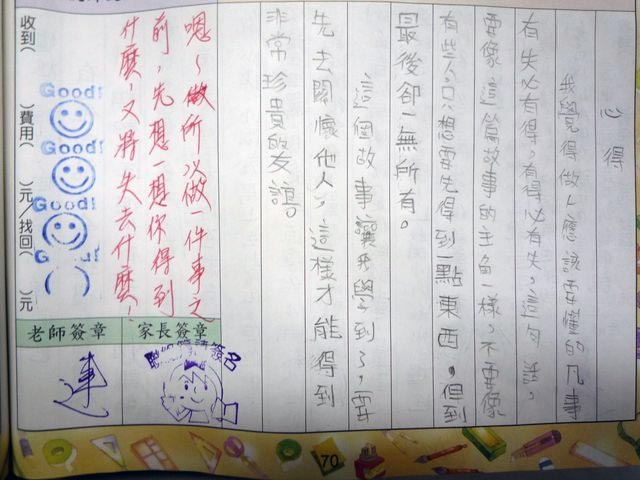 心得
我覺得做人應該要懂的凡事
有失必有得，有得必有失，這句話，
要像這篇故事的主角一樣，不要像
有些人只想要先得到一點東西，但到
最後卻一無所有。
這個故事讓我學到了，要
先去關懷他人，這樣才能得到
非常珍貴的友誼。
嗯~做所以做一件事之
前，先想一想你得到
什麼，又將失去什麼！
收到（ ）費用（ ）元/找回（ ）元
Good!
Good!
Good!
Good!
家長簽章
老師簽章
請簽名
70